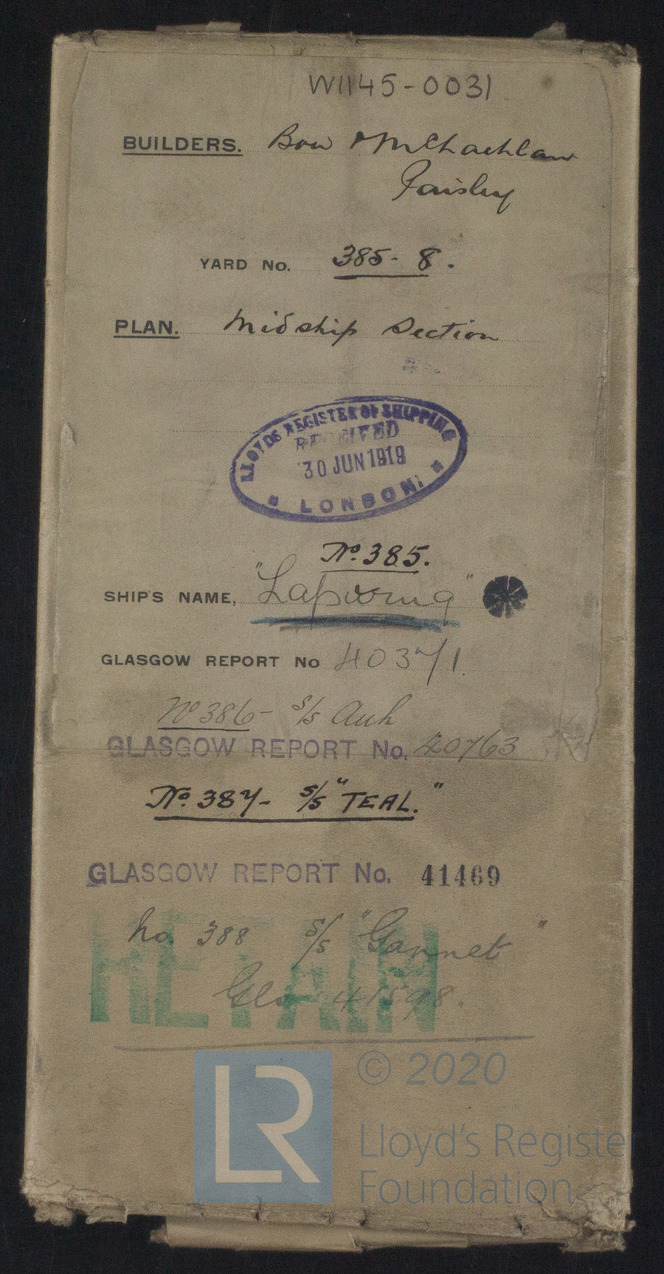 W1145-0031
BUILDERS. Bow McLachlan
Paisley
YARD No. 385-8.
PLAN. Midship Section
LLOYDS REGISTER OF SHIPPING
RECEIVED
30 JUN 1919
LONDON.
No. 385.
SHIP'S NAME, "Lapwing"
GLASGOW REPORT No 40371.
No 386- S/S Auk
GLASGOW REPORT No. 40763
No. 387- S/S "TEAL."
GLASGOW REPORT No. 41469
RETAIN
No. 388 S/S "Gannet"
Gls 41598.
LR
© 2020
Lloyd's Register
Foundation